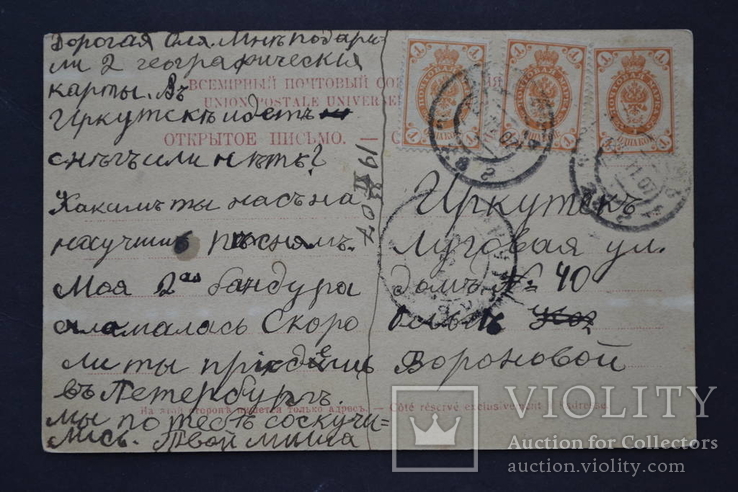 Дорогая Оля. Мнѣ подари-
ли 2 географическия
карты. Въ
Иркутскѣ идетъ
снѣгъ или нѣтъ?
Какимъ ты насъ на
научишь пѣснямъ.
Моя 2ая бандура
сламалась Скоро
ли ты приѣдешь
въ Петербургъ.
мы по тебѣ соскучи=
лись. Твой миша
19 XI 07
ВСЕМІРНЫЙ ПОЧТОВЫЙ СОЮЗ
UNION POSTALE UNIVERSELLE
ОТКРЫТОЕ ПИСЬМО.
Иркутскъ
Луговая ул.
домъ № 40
Вороновой
На этой сторонѣ пишется только адресъ. — Côté réservé exclusivement à l'adresse.
VIOLITY
Auction for Collectors
auction.violity.com